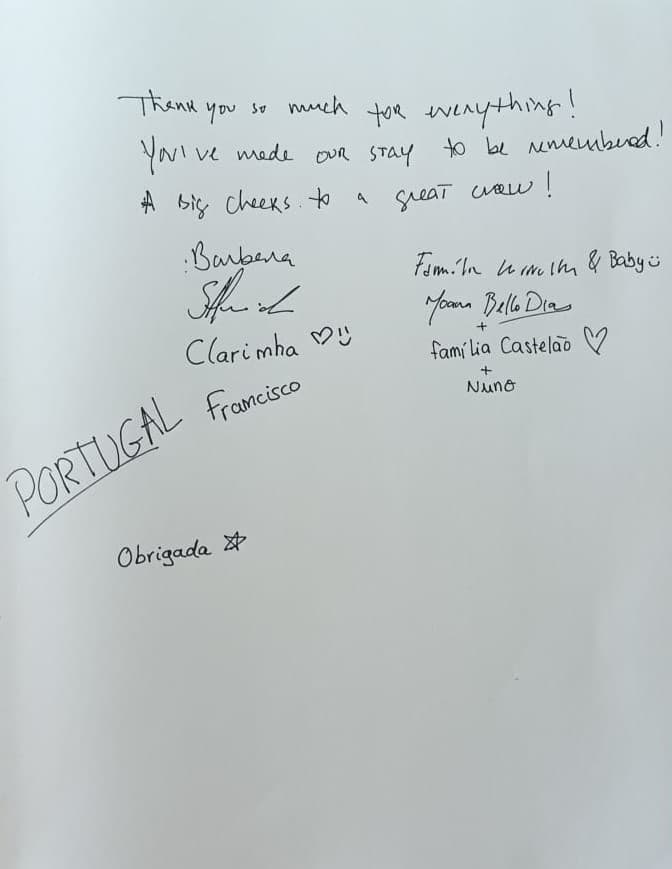 Thank you so much for everything!
You've made our stay to be remembered!
A big cheers to a great crew!
Barbera
Clarinha ♡
Francisco
PORTUGAL
& Baby
Bello Dias
+
família Castelão ♡
+
Nuno
Obrigada ☆